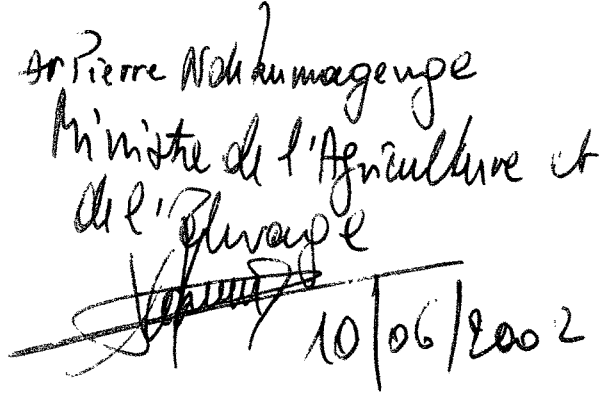 Dr Pierre Ndikumagenge
Ministre de l'Agriculture et
de l'Elevage
10/06/2002